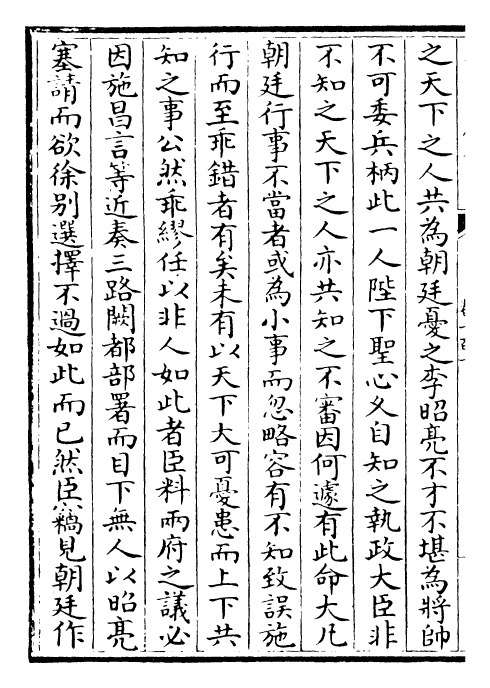 之天下之人共為朝廷憂之李昭亮不才不堪為將帥
不可委兵柄此一人陛下聖心乆自知之執政大臣非
不知之天下之人亦共知之不審因何遽有此命大凡
朝廷行事不當者或為小事而忽略容有不知致誤施
行而至乖錯者有矣未有以天下大可憂患而上下共
知之事公然乖繆任以非人如此者臣料兩府之議必
因施昌言等近奏三路闕都部署而目下無人以昭亮
塞請而欲徐別選擇不過如此而已然臣竊見朝廷作